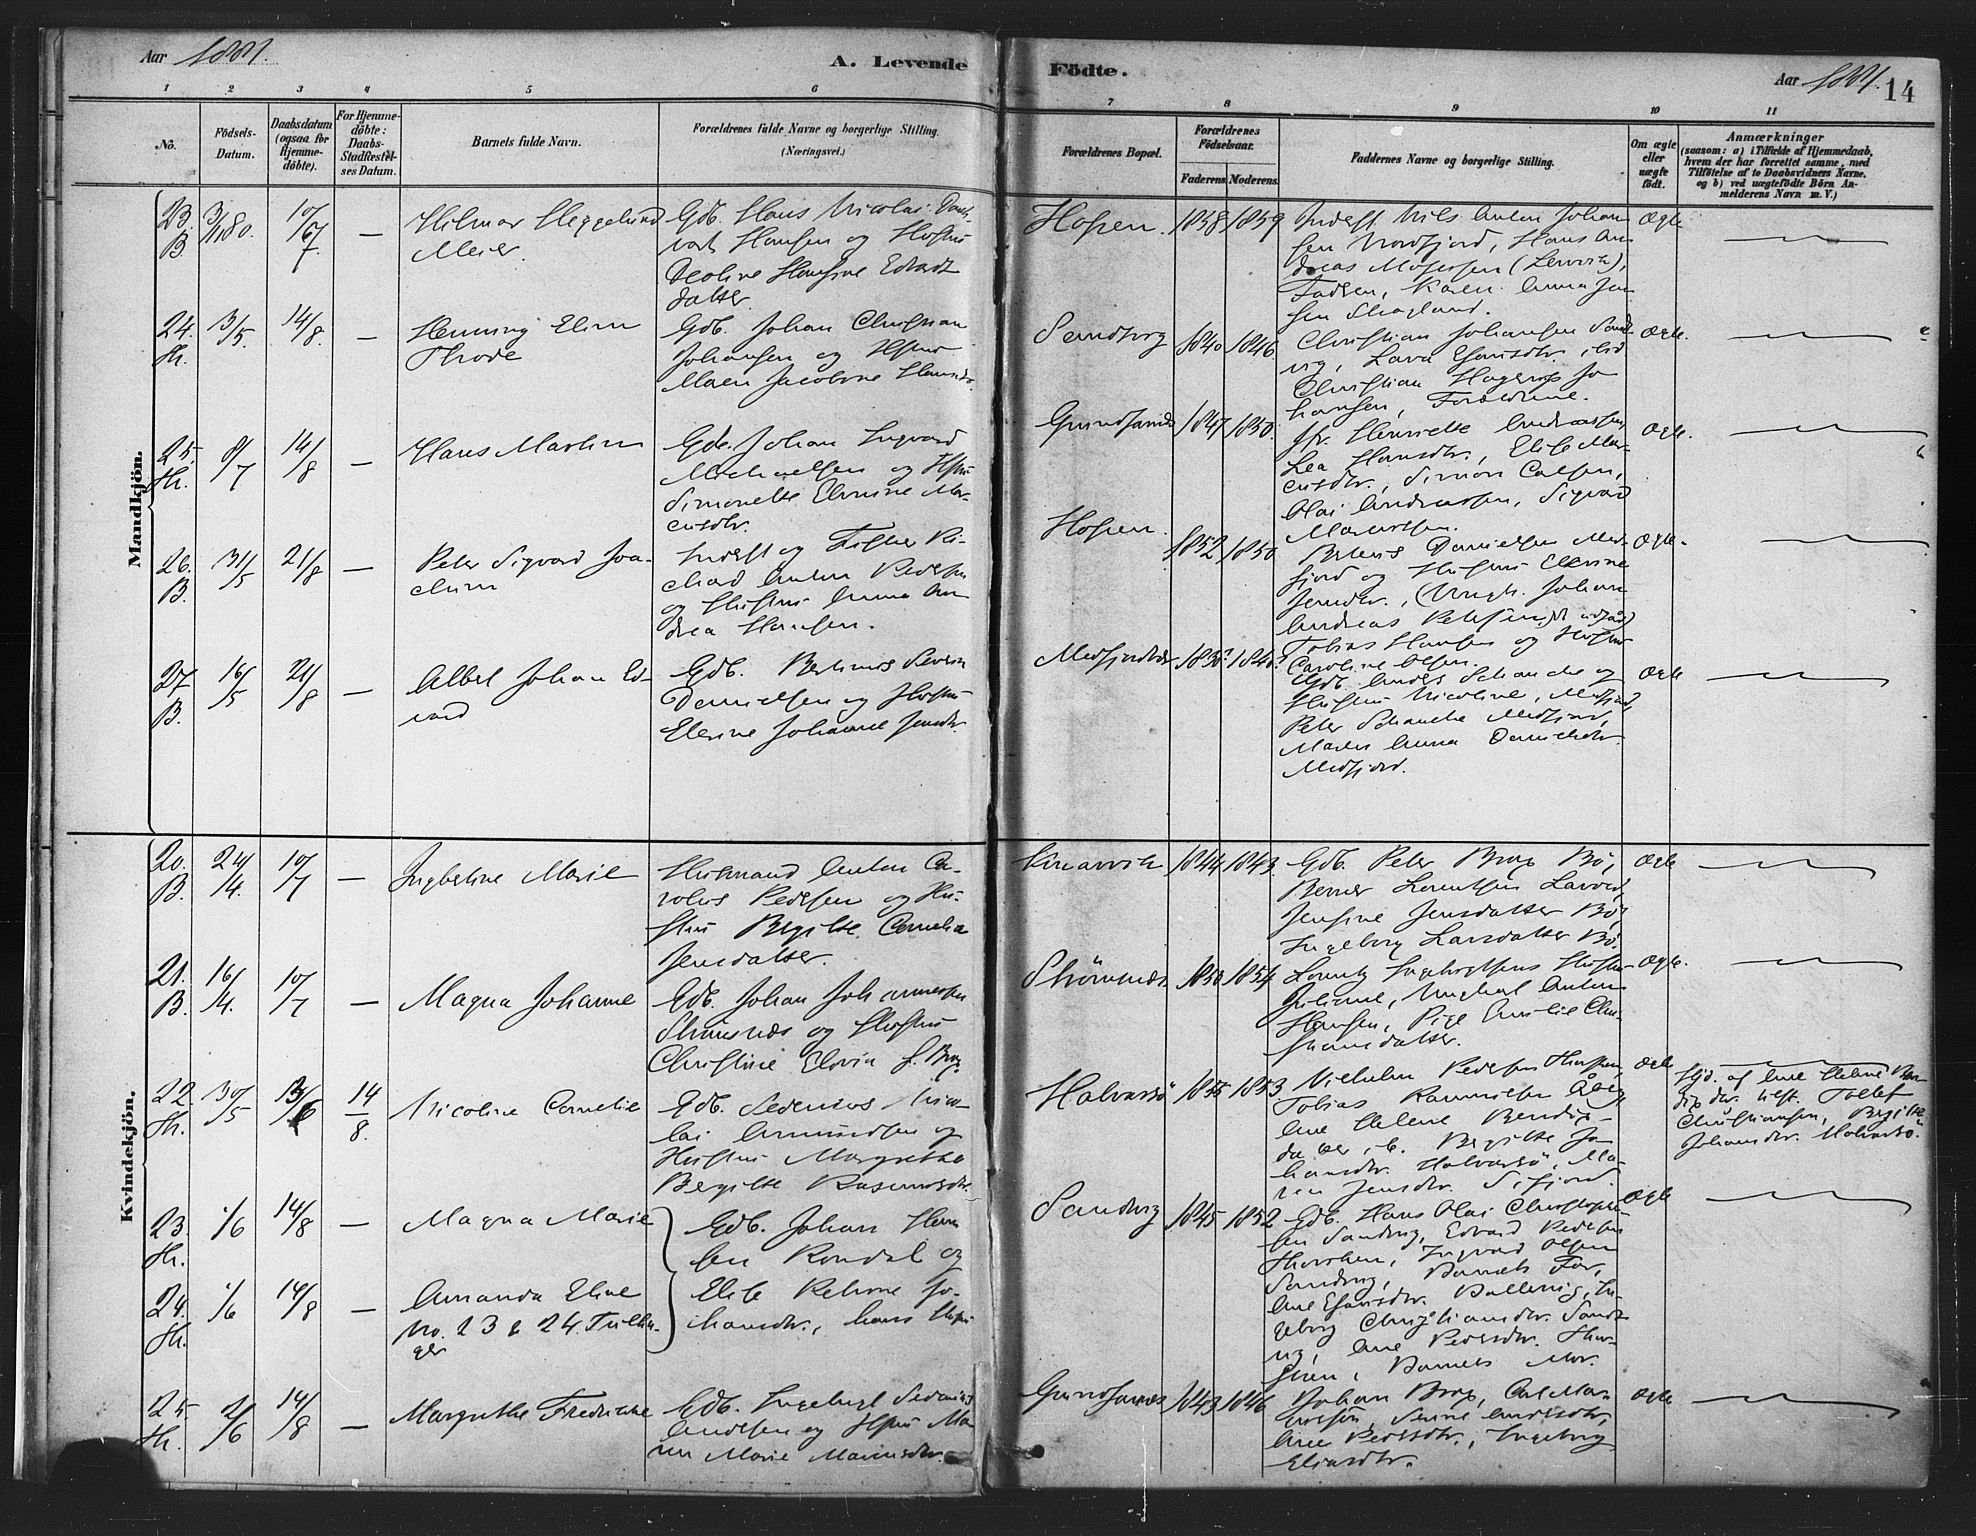 Aar 1881.
A. Levende
Födte.
Aar 1881.
14
1
2
3
4
5
6
7
8
9
10
11
No.
Födsels-
Datum.
Daabsdatum
(ogsaa for
Hjemme-
döbte).
For Hjemme-
döbte:
Daabs-
Stadfæstel-
ses Datum.
Barnets fulde Navn.
Forældrenes fulde Navne og borgerlige Stilling.
(Næringsvei.)
Forældrenes Bopæl.
Forældrenes
Födselsaar.
Faderens.
Moderens.
Faddernes Navne og borgerlige Stilling.
Om ægte
eller
uægte
födt.
Anmærkninger
(saasom: a) i Tilfælde af Hjemmedaab,
hvem der har forrettet samme, med
Tilföielse af to Daabsvidners Navne,
og b) ved uægtefödte Börn An-
melderens Navn m. V.)
Mandkjön.
23.
B.
3/11 80.
10/7
—
Hilmar Heggelund
Meier.
Gdb. Hans Nicolai
Hansen og Hustru
Hansine Edvardt
datter
Hopen.
1858
1859
Inderst Nils Anton Johan
sen Nordfjord, Hans An
dreas Mogensen (Lervik),
Faderen, Karen Anna Jen
sen
Ægte
24.
H.
13/5.
14/8.
—
Henning Elim
Thode
Gdb. Johan Christian
Johansen og Hstru
Maren Jacobine Hansdtr.
Sandvig
1840
1846.
Christian Johansen Sand-
vig, Lava Esausdtr. ibid
Christian Hagerup Jo
hansen, Forældrene.
Ægte.
25.
H.
8/7
14/8
—
Hans Martin
Gdb. Johan Ingvard
Michaelsen og Hstru
Simonette Elenine Mar-
cusdtr.
Grundfarnæs
1847
1850.
Jfr. Henriette Andreassen,
Lea Hansdtr., Elise Mar-
cusdtr., Simon Carlsen,
Olai Andreassen, Sigvard
Marcussen.
Ægte.
26.
B.
31/5
21/8
—
Peter Sigvard Joa-
chim
Inderst og Fisker Ri-
chard Anton Pedersen
og Hustru Anna An
drea Hansen.
Hopen.
1852
1850
Danielsen Med-
fjord og Hustru Elerine
Jensdtr., Ungk. Johan
Andreas Petersen
Tobias Hansen og Hustru
Caroline Olsen.
Ægte.
27
B.
16/5
21/8
—
Albert Johan Ed-
vard
Gdb. Bertinus Severin
Danielsen og Hustru
Elerine Johanne Jensdtr.
Medfjordvær
1838?
1840?
Gdb. Anders Schanche og
Hustru Nicoline, Medfjord,
Peter Schanche Medfjord,
Maren Anna Danielsdtr
Medfjord.
Ægte
Kvindekjön.
20.
B.
24/4.
10/7
—
Ingbertine Marie
Husmand Anton Ca-
rolius Pedersen og Hu-
stru Birgitte Cornelia
Jensdatter.
1844
1843.
Gdb. Peter Brox Bö,
Berner Lorentsen
Jensine Jensdatter Bö,
Ingeborg Larsdatter Bö.
Ægte
21.
B.
16/4.
10/7
—
Magna Johanne
Gdb. Johan Johannesen
og Hustru
Christine Elovia f. Brox.
1854
Lorentz Ingebrigtsens Hustru
Juliane, Ungkarl Anton
Hansen, Pige Amalie Chri-
stiansdatter.
Ægte.
22.
H.
30/5
13/6
14/8.
Nicoline Cornelie
Gdb. Sedenius Nico-
lai Amundsen og
Hustru Margrethe
Birgitte Rasmusdtr
Halvarsö
1855
1853.
Vilhelm Pedersen
Tobias
Ane Helene Bendix-
datter, Birgitte Jo
hansdtr. Halvarsö, Ma-
ren Jensdtr. Sifjord.
Ægte
Hjd. af Ane Helene Ben-
dixdtr. Tollef
Christiansen, Birgitte
Johansdtr. Halvarsö.
23.
H.
1/6
14/8
—
Magna Marie
Gdb. Johan Han
sen Rondal og
Elise Petrine Jo-
hansdtr., hans Hstru
Sandvig
1845
1852
Gdb. Hans Olai Christophersen
Sandvig, Edvard Pedersen
Ingvard Olsen
Sandvig, Barnets Far,
Ane Esausdtr. In-
geborg Christiansdtr. Sand-
vig, Ane Pedersdtr.
Barnets Mor.
Ægte
24.
H.
1/6
14/8
—
Amanda Eline
No. 23 & 24. Tvillin-
ger
25
H.
2/6
14/8
—
Margrethe Fredrikke
Gdb. Ingebrigt Sedenius
Andersen og Hstru
Marie
Grundfarnæs
1843
1846
Johan Brox, Carl Mar-
cussen, Andersdtr.
Ane Pedersdtr., Ingeborg
Eliasdtr.
Ægte